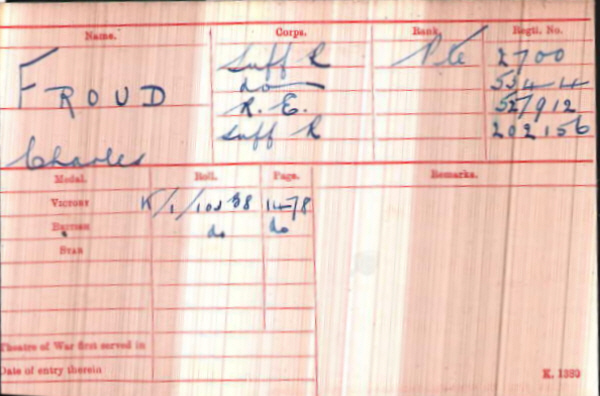 Name. Corps. Rank. Regtl. No.
FROUD Suff R Pte 2700
do 5544
R. E. 527912
Suff R 202156
Charles
Medal. Roll. Page. Remarks.
VICTORY K/1/102 B8 1478
BRITISH do do
STAR
Theatre of War first served in
Date of entry therein K. 1380